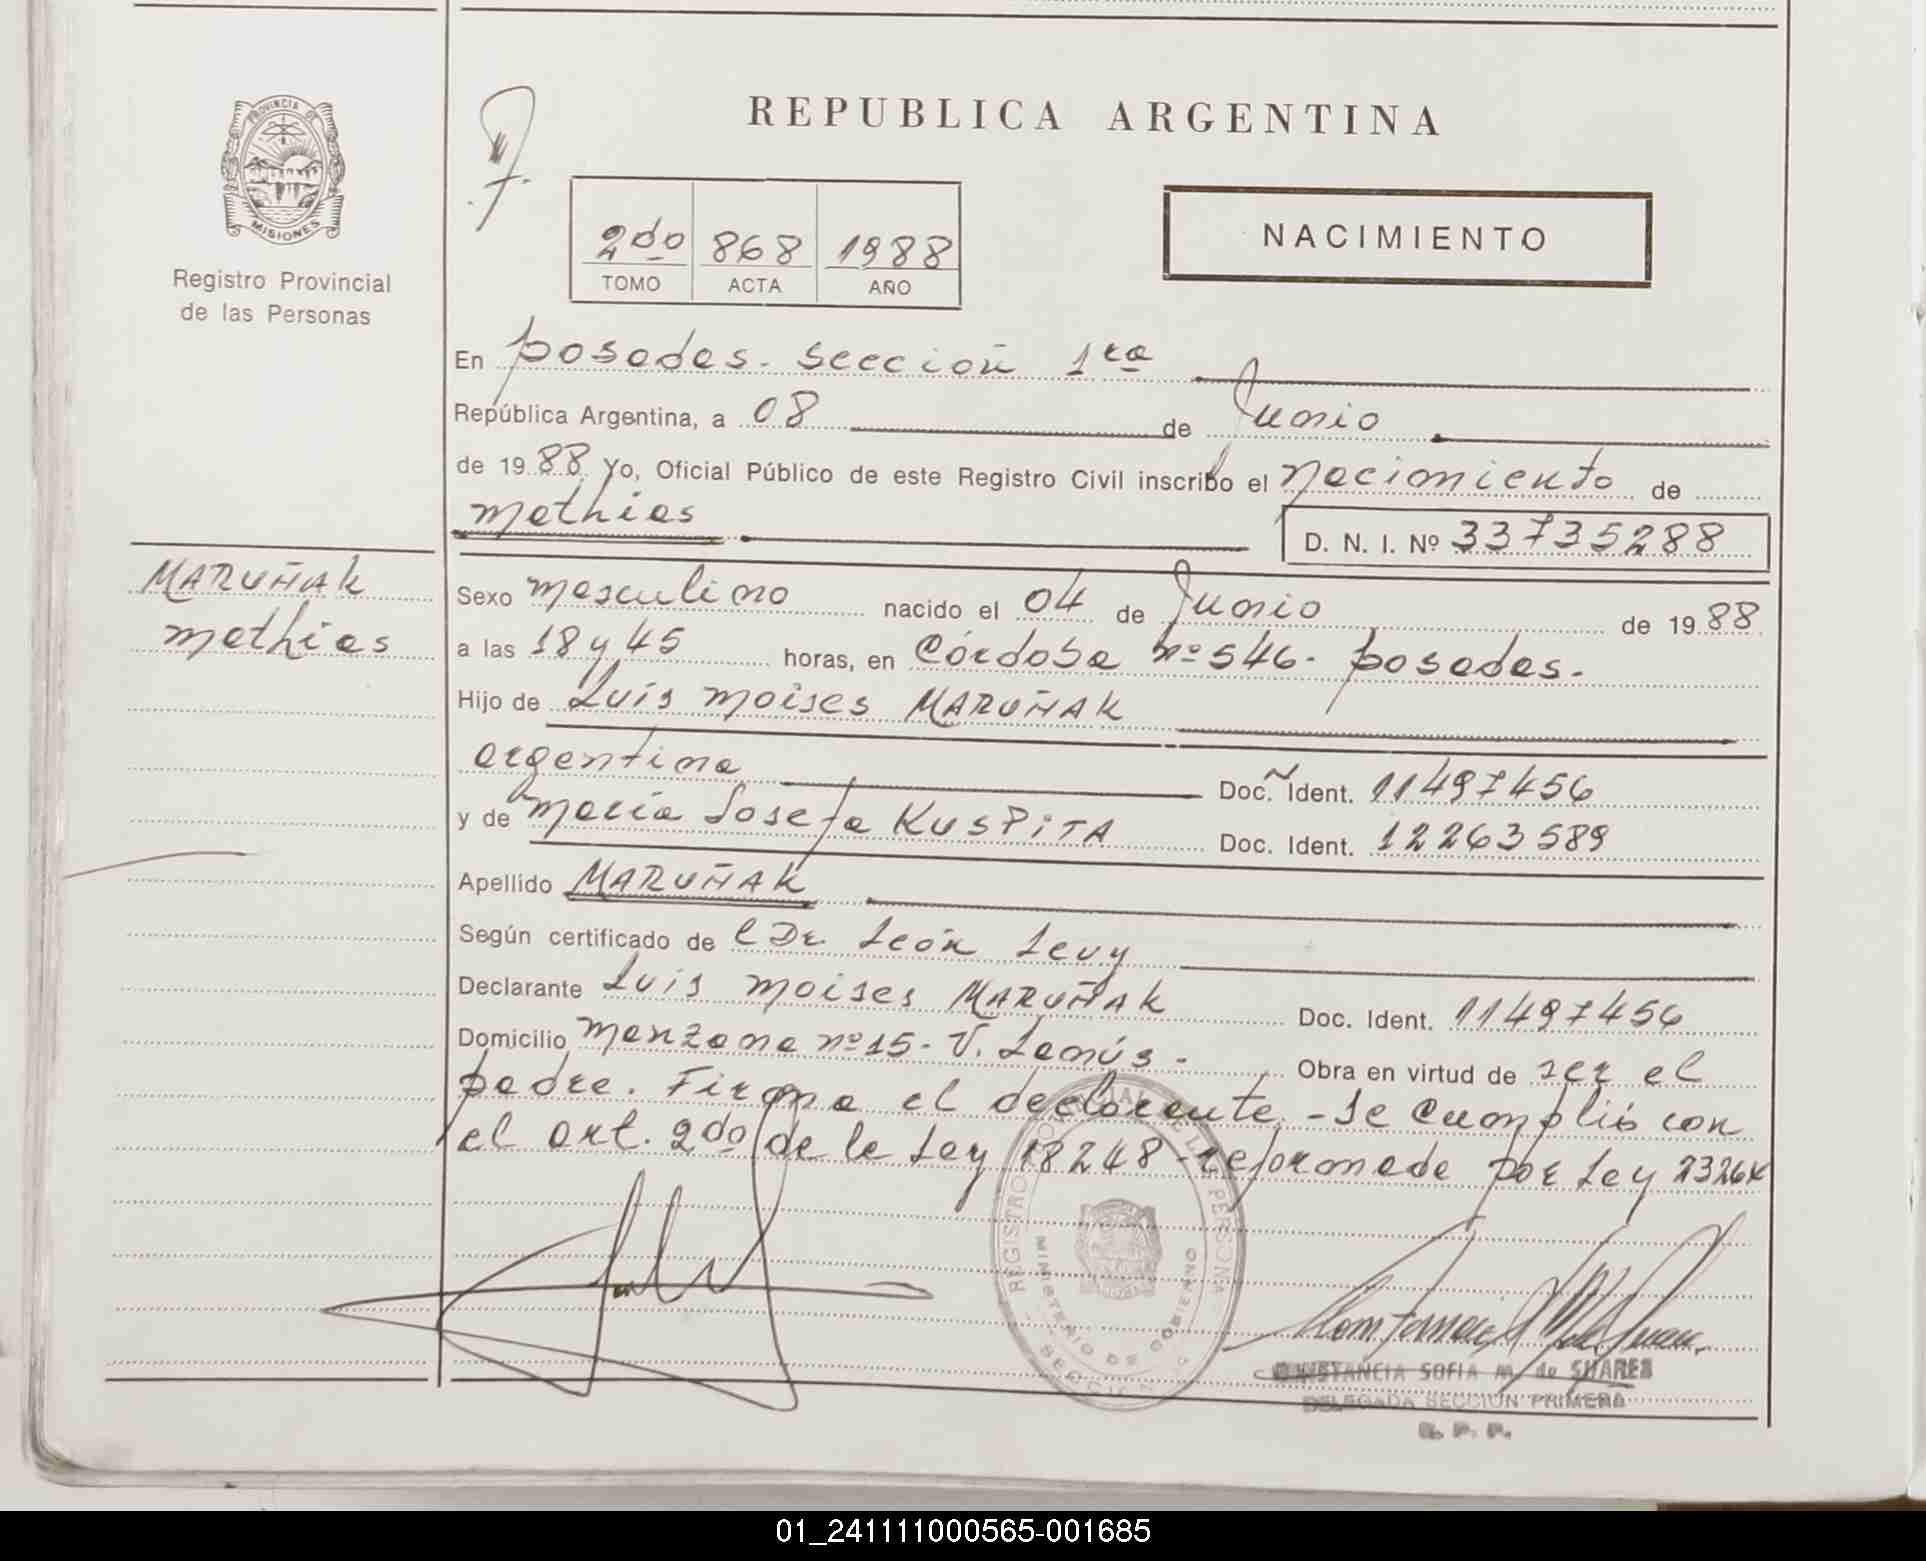 REPUBLICA ARGENTINA
PROVINCIA DE
MISIONES
Registro Provincial
de las Personas
2do 868 1988
TOMO ACTA AÑO
NACIMIENTO
En posadas. sección 1ra
República Argentina, a 08 de Junio
de 1988 Yo, Oficial Público de este Registro Civil inscribo el Nacimiento de
mathias
D. N. I. Nº 33735288
MARUÑAK
mathias
Sexo masculino nacido el 04 de Junio de 1988
a las 18 y 45 horas, en Córdoba nº 546. posadas.
Hijo de Luis moises MARUÑAK
argentina Doc. Ident. 11497456
y de maría Josefa KUSPITA Doc. Ident. 12263589
Apellido MARUÑAK
Según certificado de l Dr. León Levy
Declarante Luis moises MARUÑAK Doc. Ident. 11497456
Domicilio manzana nº 15 - V. Lanús - Obra en virtud de ser el
padre. Firma el declarante. - Se cumplió con
el art. 2do de la Ley 18248 - reformada por Ley 23264
REGISTRO PROVINCIAL DE LAS PERSONAS
MINISTERIO DE GOBIERNO
SECCION
CONSTANCIA SOFIA M. de SUARES
DELEGADA SECCION PRIMERA
R. P. P.
01_241111000565-001685